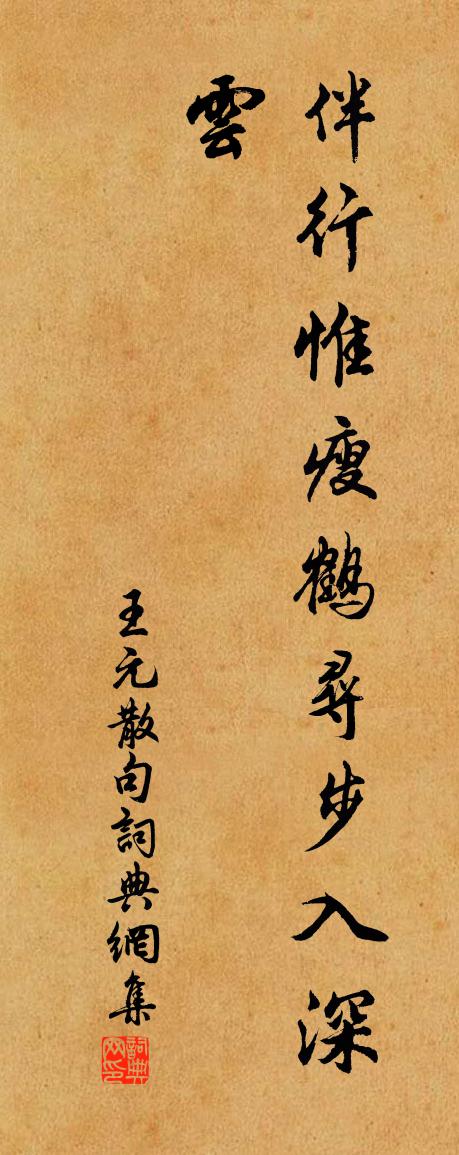 伴行惟瘦鶴尋步入深
雲
王元散句詞典網集
詞典網印